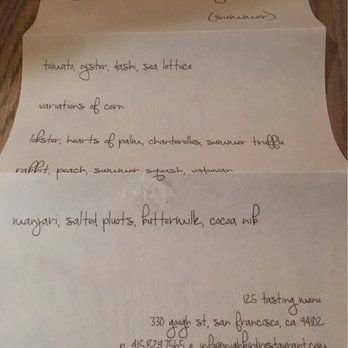 (summer)
tomato, oyster, dashi, sea lettuce
variations of corn
lobster, hearts of palm, chanterelles, summer truffle
rabbit, peach, summer squash, vadouvan
manjari, salted pluots, buttermilk, cocoa nib
125 tasting menu
330 gough st, san francisco, ca 94102
p. 415.829.7565 e. info@nighbirdrestaurant.com